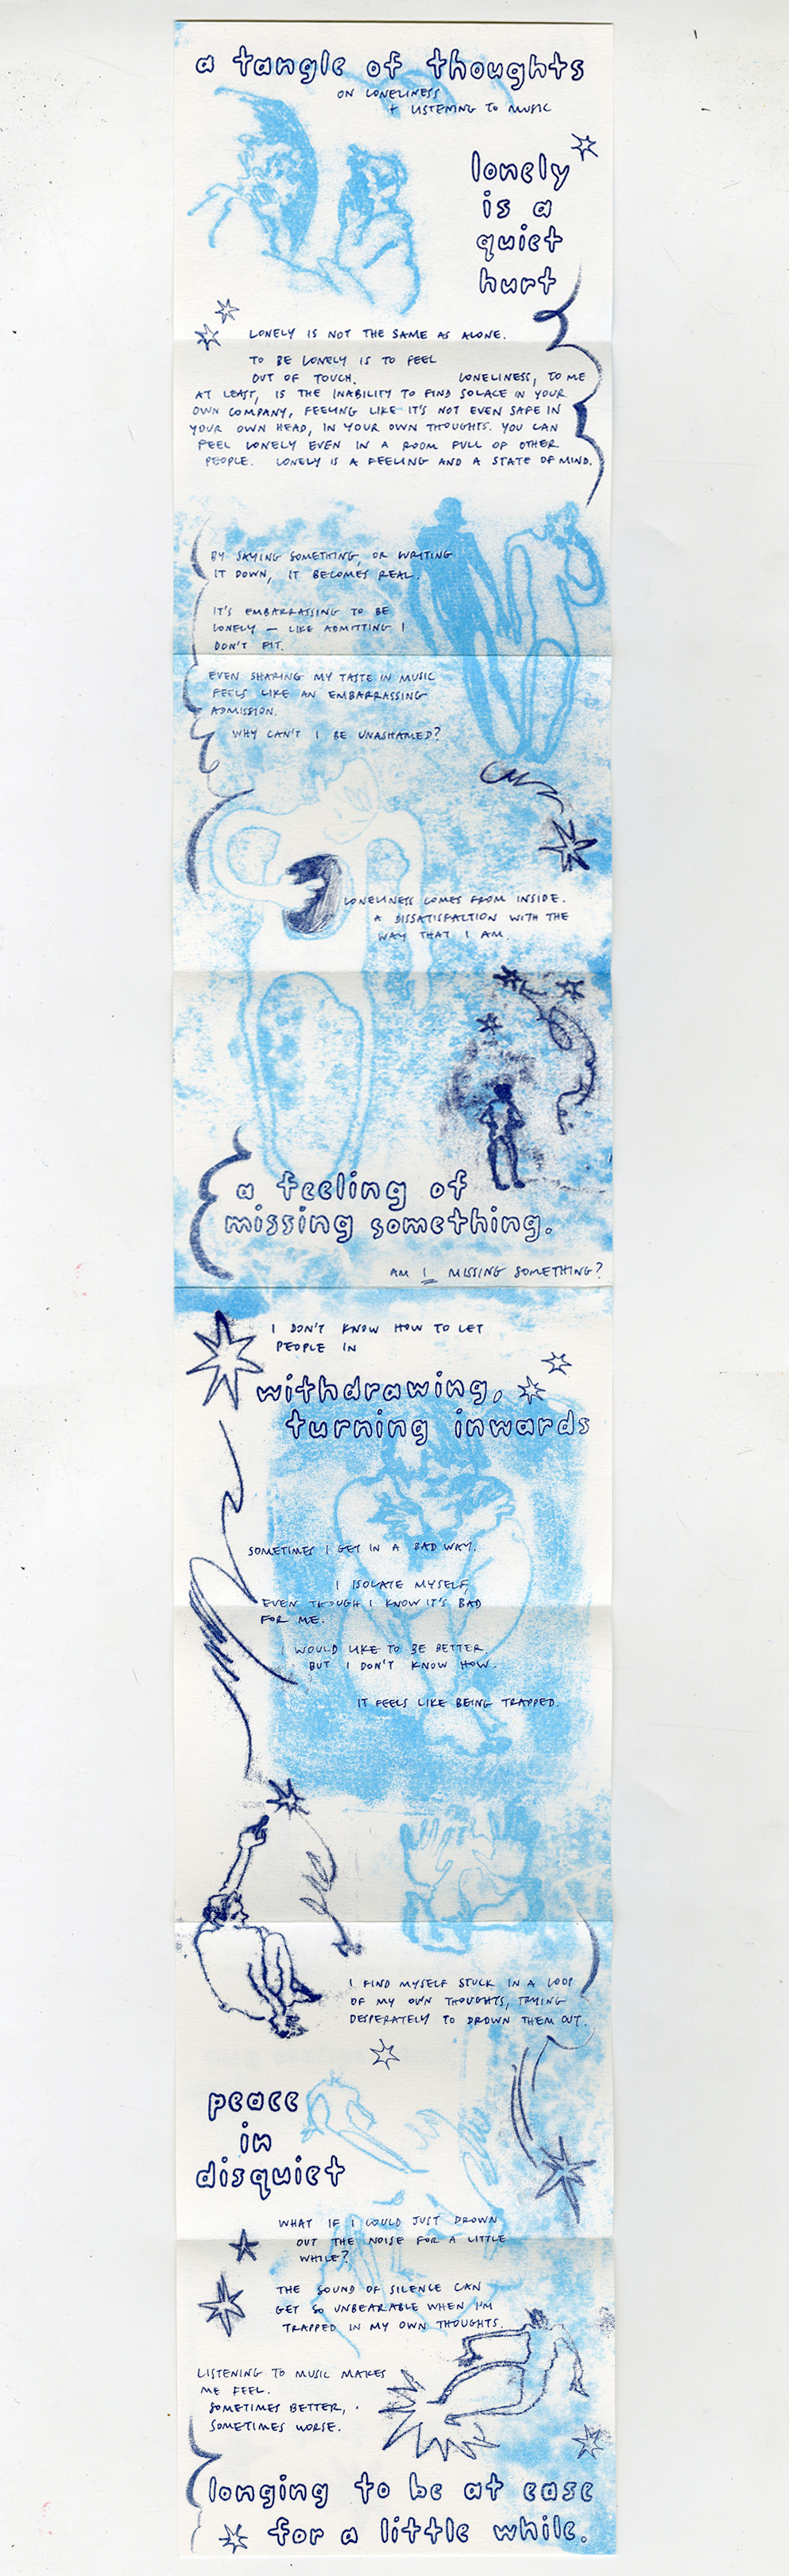 a tangle of thoughts
ON LONELINESS
+ LISTENING TO MUSIC
lonely
is a
quiet
hurt
LONELY IS NOT THE SAME AS ALONE.
TO BE LONELY IS TO FEEL
OUT OF TOUCH. LONELINESS, TO ME
AT LEAST, IS THE INABILITY TO FIND SOLACE IN YOUR
OWN COMPANY, FEELING LIKE IT'S NOT EVEN SAFE IN
YOUR OWN HEAD, IN YOUR OWN THOUGHTS. YOU CAN
FEEL LONELY EVEN IN A ROOM FULL OF OTHER
PEOPLE. LONELY IS A FEELING AND A STATE OF MIND.
BY SAYING SOMETHING, OR WRITING
IT DOWN, IT BECOMES REAL.
IT'S EMBARRASSING TO BE
LONELY — LIKE ADMITTING I
DON'T FIT.
EVEN SHARING MY TASTE IN MUSIC
FEELS LIKE AN EMBARRASSING
ADMISSION.
WHY CAN'T I BE UNASHAMED?
LONELINESS COMES FROM INSIDE.
A DISSATISFACTION WITH THE
WAY THAT I AM.
a feeling of
missing something.
AM I MISSING SOMETHING?
I DON'T KNOW HOW TO LET
PEOPLE IN
withdrawing,
turning inwards
SOMETIMES I GET IN A BAD WAY.
I ISOLATE MYSELF,
EVEN THOUGH I KNOW IT'S BAD
FOR ME.
I WOULD LIKE TO BE BETTER
BUT I DON'T KNOW HOW.
IT FEELS LIKE BEING TRAPPED.
I FIND MYSELF STUCK IN A LOOP
OF MY OWN THOUGHTS, TRYING
DESPERATELY TO DROWN THEM OUT.
peace
in
disquiet
WHAT IF I COULD JUST DROWN
OUT THE NOISE FOR A LITTLE
WHILE?
THE SOUND OF SILENCE CAN
GET SO UNBEARABLE WHEN I'M
TRAPPED IN MY OWN THOUGHTS.
LISTENING TO MUSIC MAKES
ME FEEL.
SOMETIMES BETTER,
SOMETIMES WORSE.
longing to be at ease
for a little while.